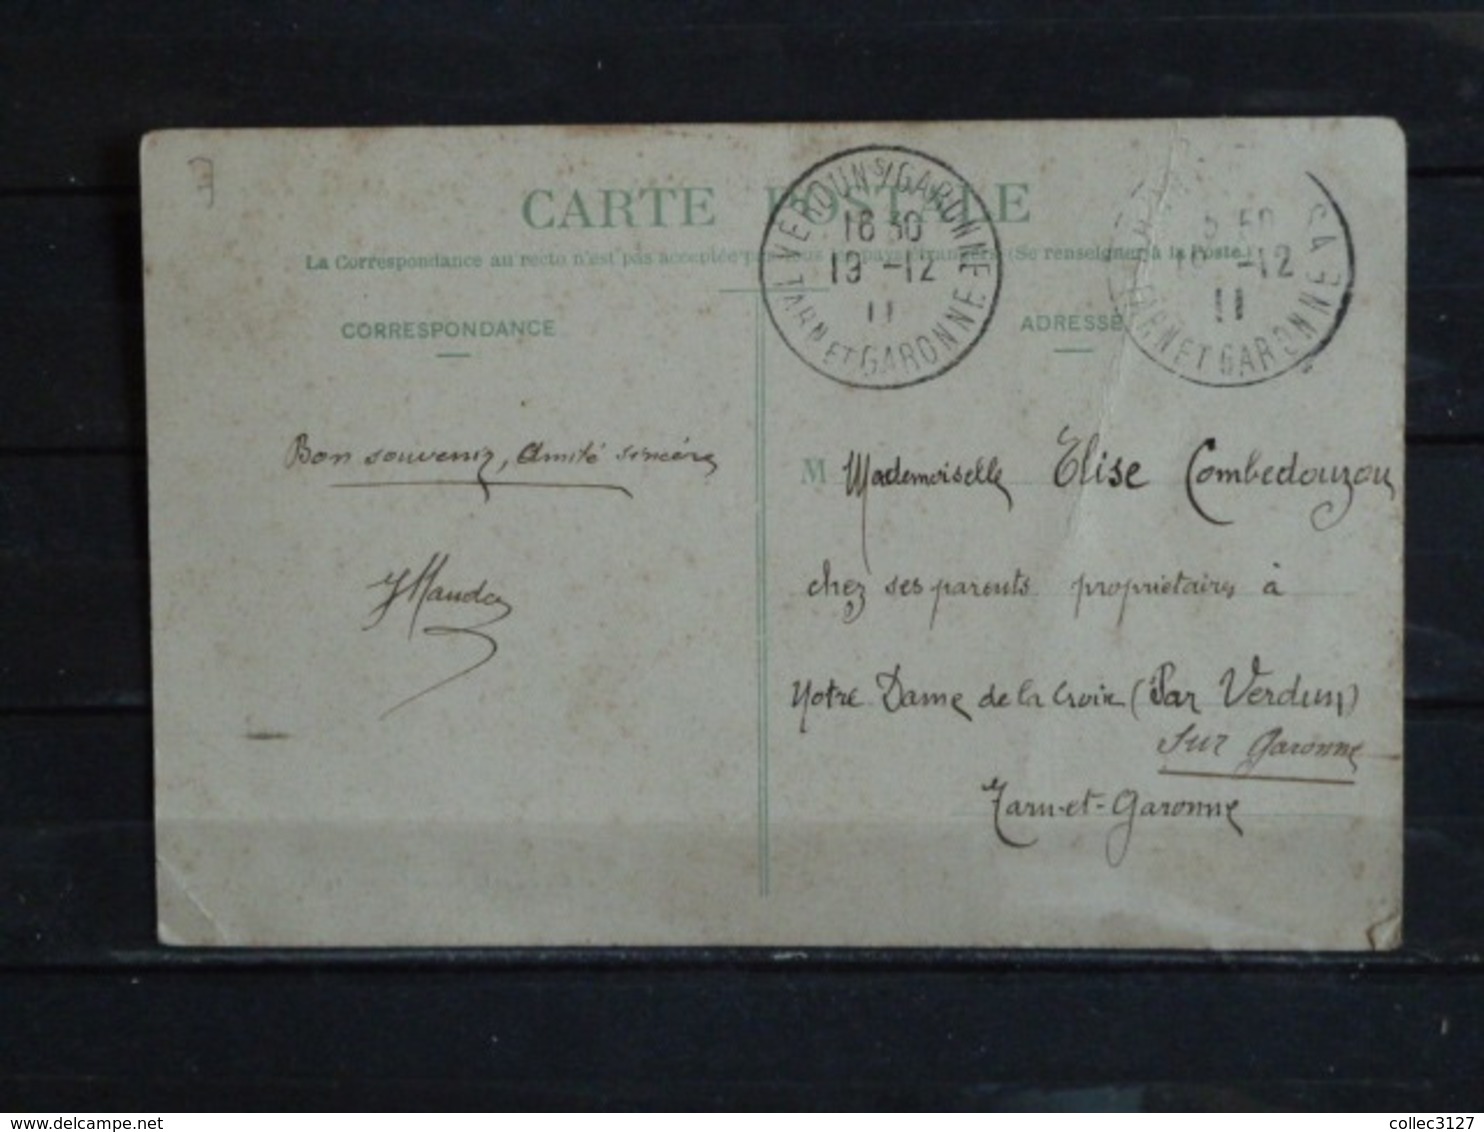 CARTE POSTALE
La Correspondance au recto n'est pas acceptée par tous les pays étrangers (Se renseigner à la Poste.)
VERDUN S/GARONNE
16 30
19 -12
11
TARN ET GARONNE
-12
11
TARN ET GARONNE
CORRESPONDANCE
ADRESSE
Bon souvenir, Amitié sincère
M Mademoiselle Elise Combedouzou
chez ses parents propriétaires à
Notre Dame de la Croix (Par Verdun)
sur Garonne
Tarn-et-Garonne
www.delcampe.net
collec3127